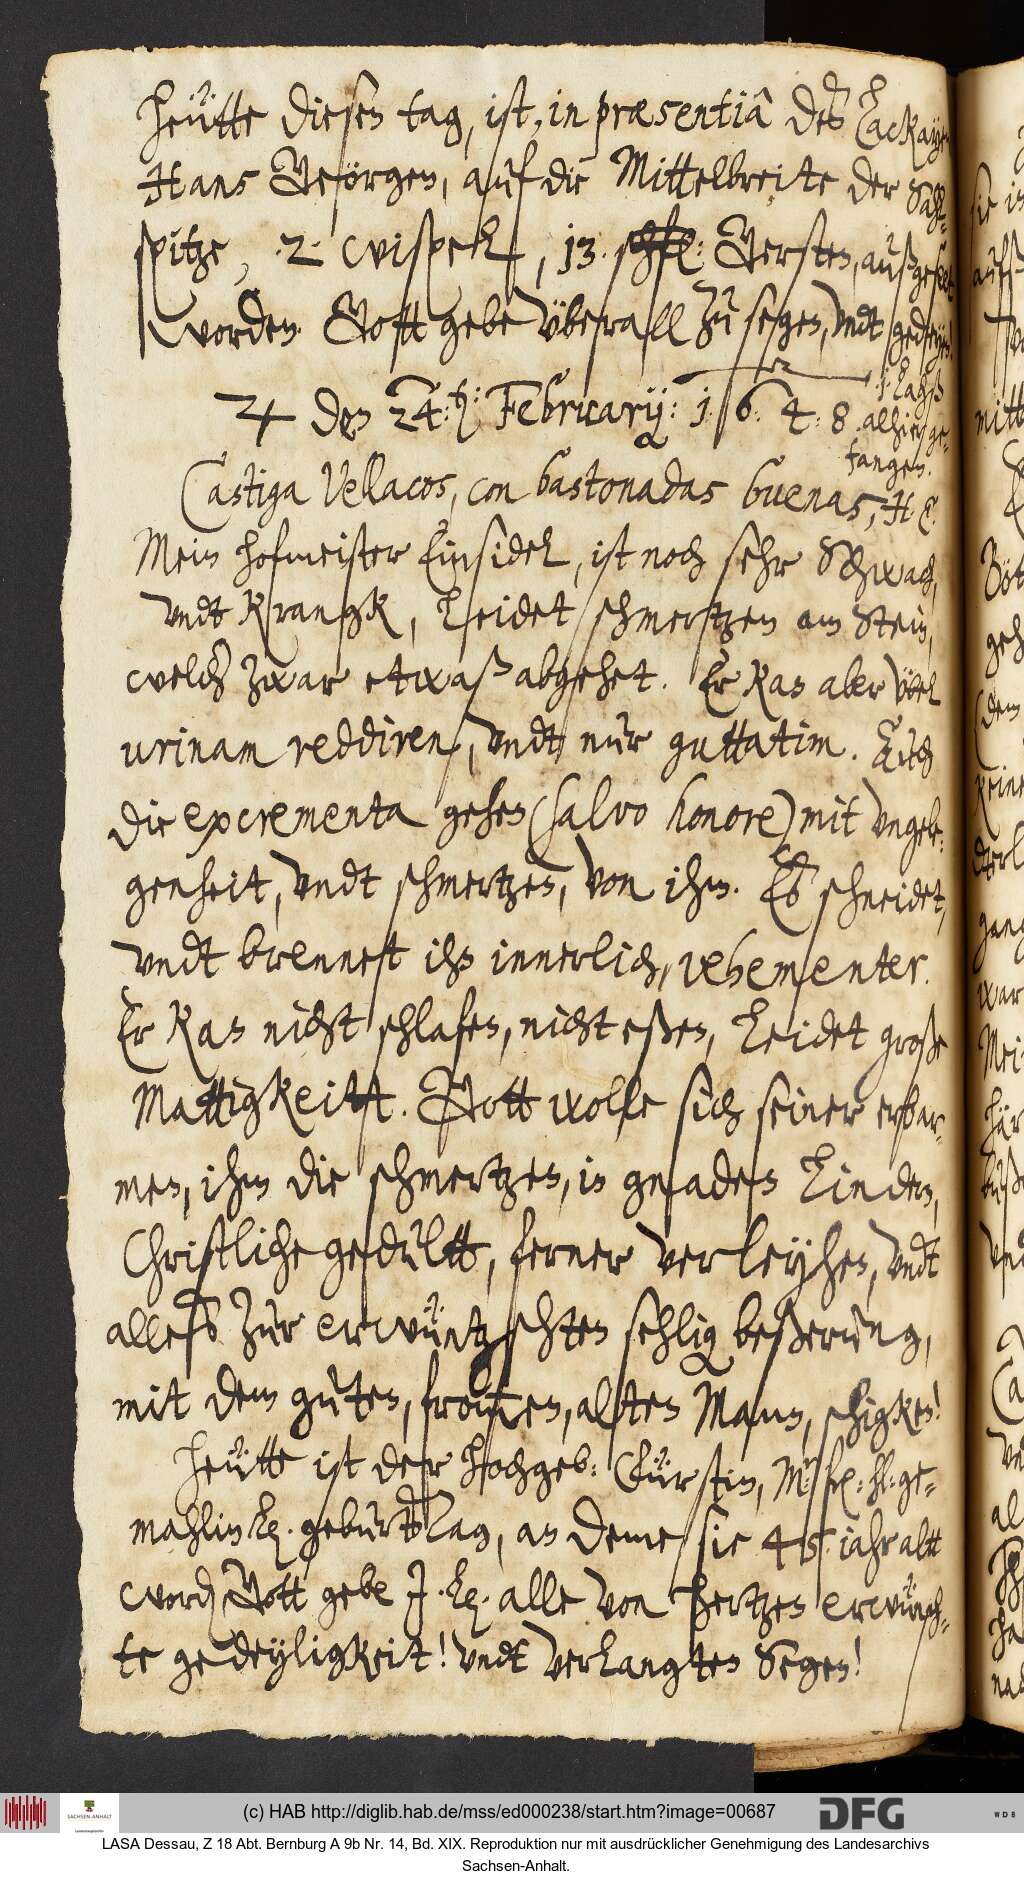 Heütte diesen tag, ist, in præsentiâ des Lackayen
Hans Geörgen, auf die Mittelbreite der Sahl-
spitze, 2 wispel, 13. schfl: Gersten, außgeseet
worden. Gott gebe überall zu segen, undt gedeyen!
♃ den 24:ten Februarij: 1648.
1 Lachß
alhier ge-
fangen.
Castiga Vellacos, con bastonadas buenas, H E.
Mein hofmeister Einsidel, ist noch sehr Schwach,
undt Krangk, Leidet schmertzen am Stein,
welcher zwar etwaß abgehet. Er Kan aber übel
urinam reddiren, undt nur guttatim. Auch
die excrementa gehen (salvo honore) mit ungele-
genheit, undt schmertzen, von ihm. Es schneidet,
undt brennet ihn innerlich, vehementer.
Er Kan nicht schlafen, nicht eßen, Leidet große
Mattigkeitt. Gott wolle sich seiner erbar-
men, ihm die schmertzen, in genaden Lindern,
Christliche gedultt, ferner verleyhen, undt
alleß zur erwüntzschten sehlig beßerung,
mit dem guten, frommen, alten Mann, schigken!
Heütte ist der Hochgeb: Fürstin, M: fr: hl: ge-
mahlin Ld. geburtsTag, an deme sie 45. iahr altt
word Gott gebe J. Ld. alle von hertzen erwünsch-
te gedeyligkeit! undt verlangten Segen!
(c) HAB http://diglib.hab.de/mss/ed000238/start.htm?image=00687
SACHSEN-ANHALT
DFG
WDB
LASA Dessau, Z 18 Abt. Bernburg A 9b Nr. 14, Bd. XIX. Reproduktion nur mit ausdrücklicher Genehmigung des Landesarchivs
Sachsen-Anhalt.